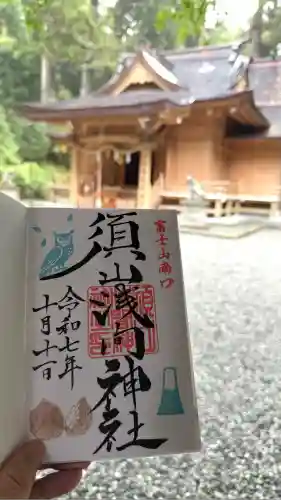 富士山南口
須山浅间神社
令和七年
十月十一日